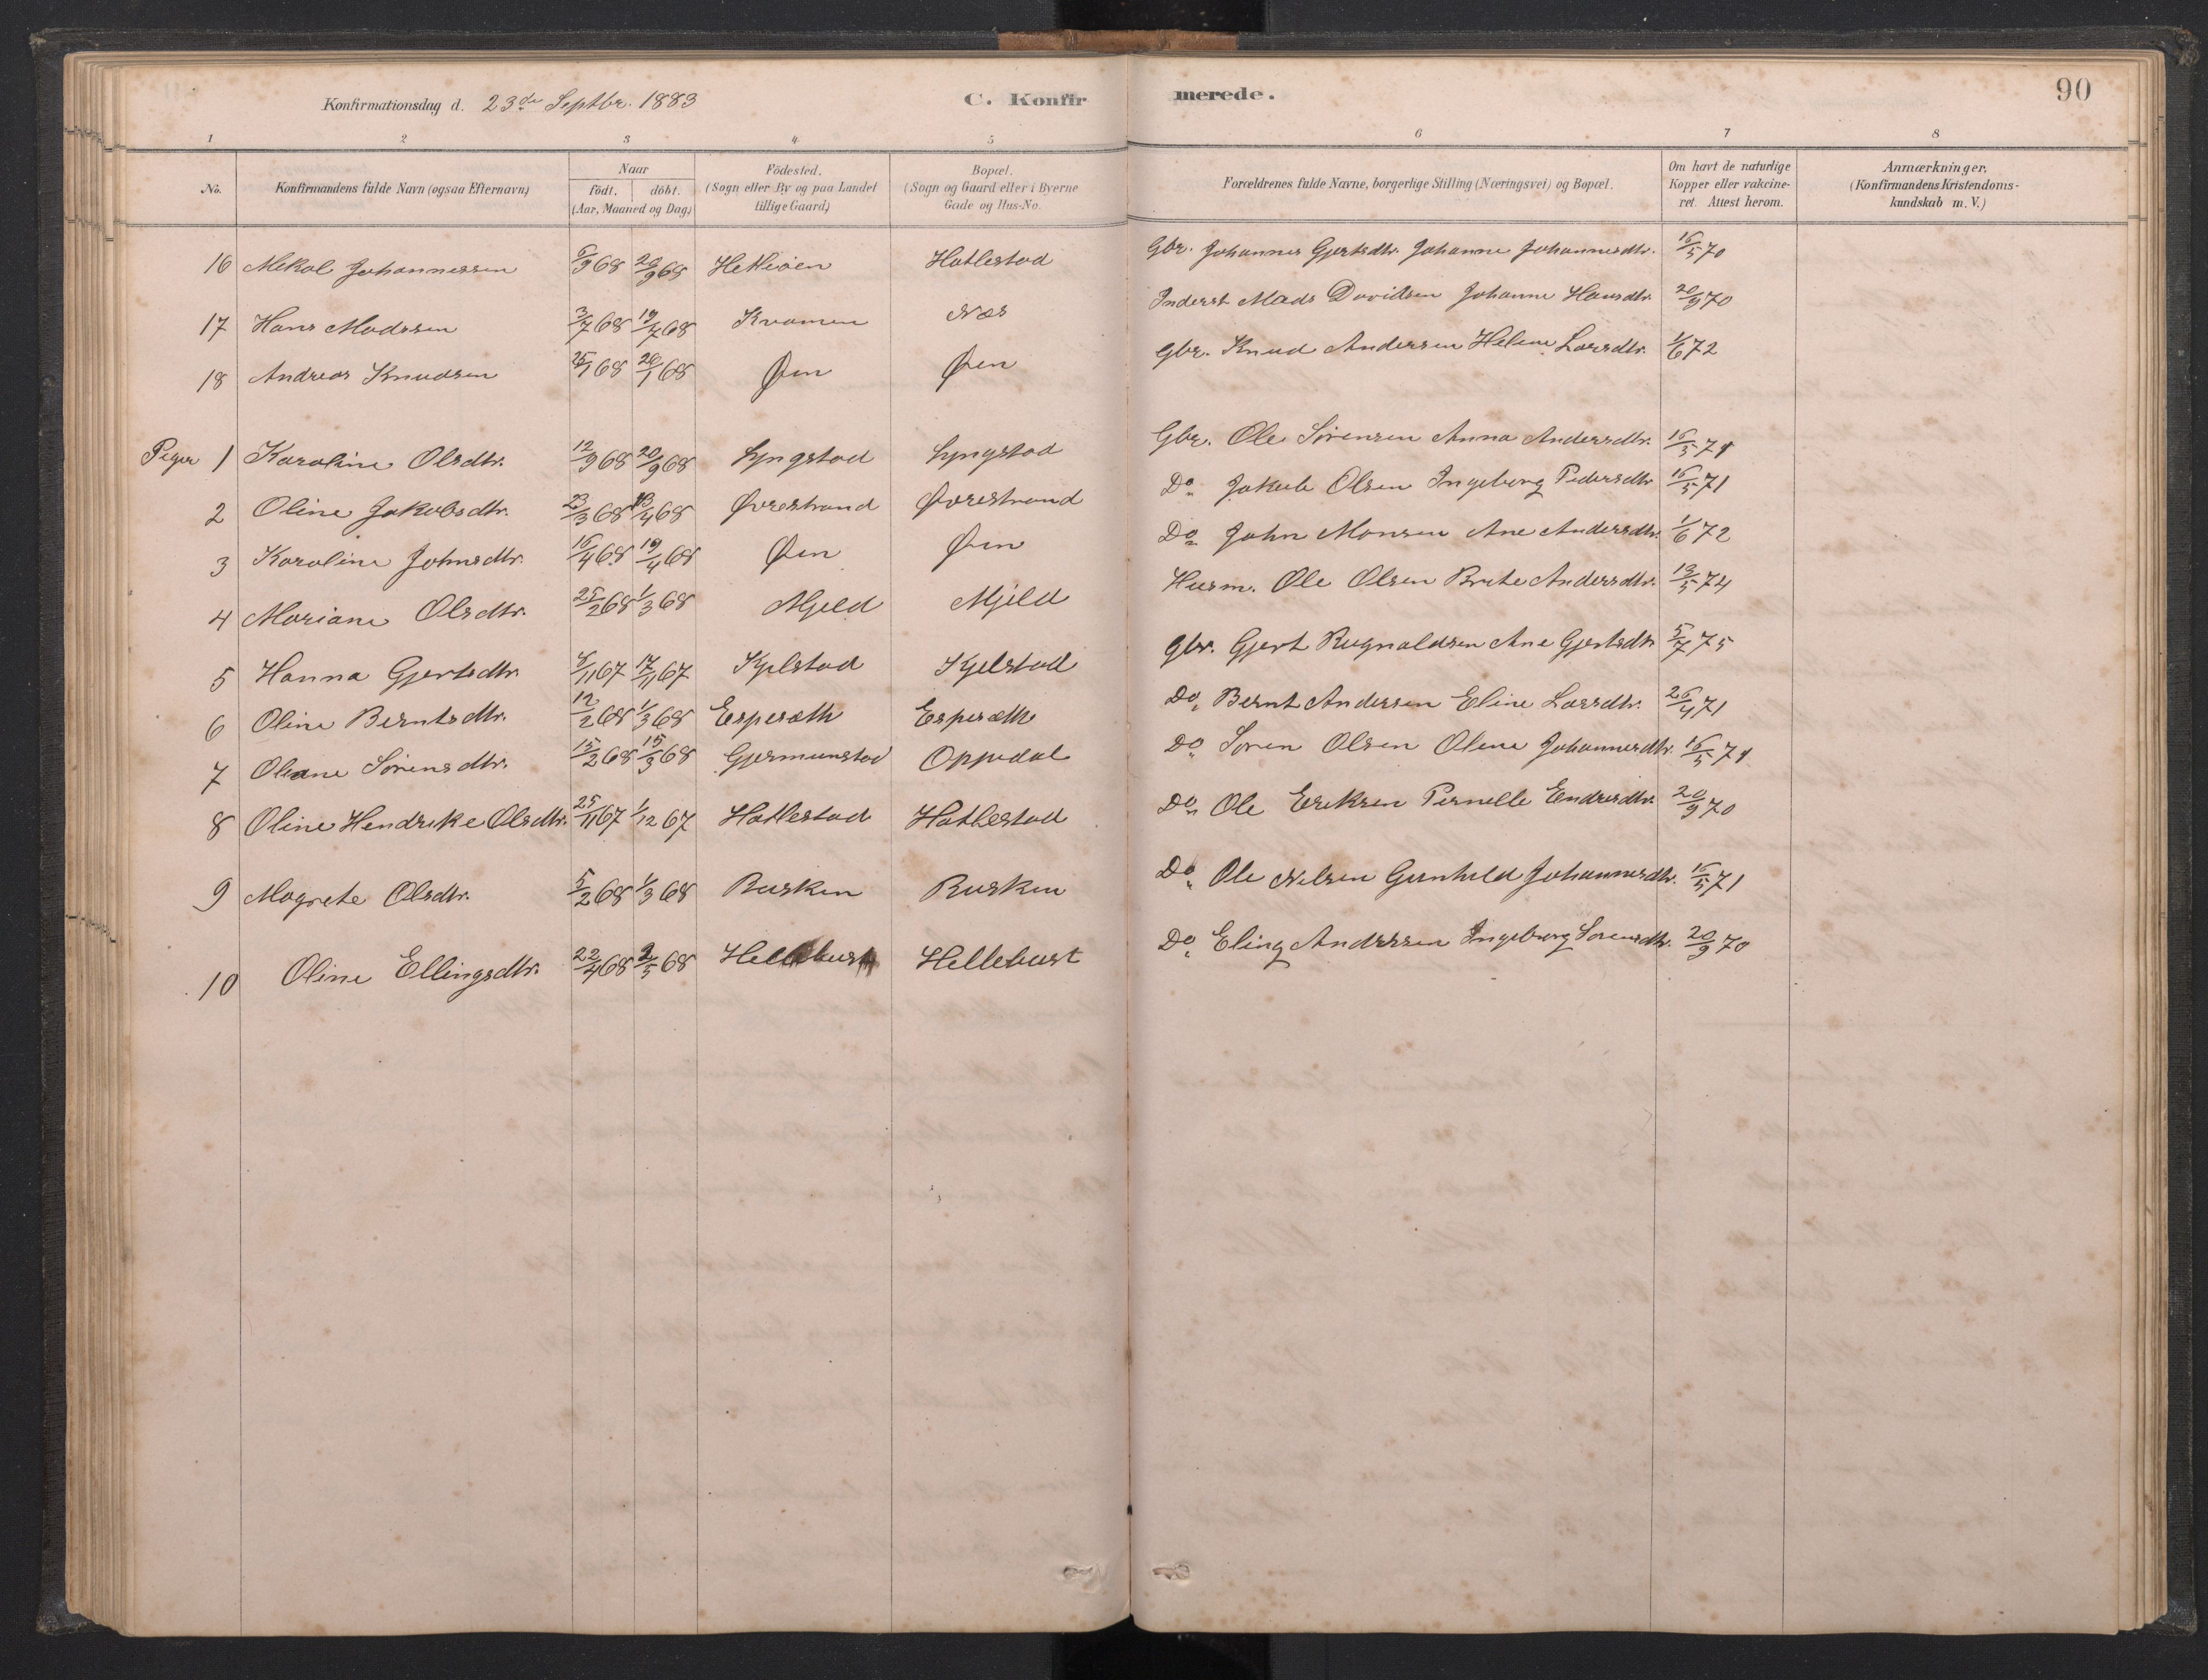 Konfirmationsdag d. 23de Septbr. 1883 C. Konfirmerede. 90
1 2 3 4 5 6 7 8
No. Konfirmandens fulde Navn (ogsaa Efternavn) Naar födt. döbt. (Aar, Maaned og Dag) Födested. (Sogn eller By og paa Landet tillige Gaard) Bopæl. (Sogn og Gaard eller i Byerne Gade og Hus-No. Forældrenes fulde Navne, borgerlige Stilling (Næringsvei) og Bopæl. Om havt de naturlige Kopper eller vakcineret. Attest herom. Anmærkninger. (Konfirmandens Kristendomskundskab m.V.)
16 Mikal Johannessen 6/9 68 20/9 68 Hatlestad Gbr. Johannes Gjertsdtr. Johanne Johannesdtr. 16/5 70
17 Hans Madssen 3/7 68 19/7 68 Kvamen Næs Inderst Mads Davidsen Johanne Hansdtr. 20/9 70
18 Andreas Knudsen 25/1 68 26/1 68 Øen Øen Gbr. Knud Andersen Helene Larsdtr. 1/6 72
Piger 1 Karoline Olsdtr. 12/9 68 20/9 68 Lyngstad Lyngstad Gbr. Ole Sørensen Anna Andersdtr. 16/5 71
2 Oline Jakobsdtr. 23/3 68 13/4 68 Øvrestrand Øvrestrand Do. Jakob Olsen Ingeborg Pedersdtr 16/5 71
3 Karoline Johnsdtr. 16/4 68 19/4 68 Øen Øen Do. John Monsen Ane Andersdtr. 1/6 72
4 Mariane Olsdtr. 25/2 68 1/3 68 Mjeld Mjeld Husm. Ole Olsen Brite Andersdtr. 13/5 74
5 Hanna Gjertsdtr. 8/11 67 17/11 67 Kjelstad Kjelstad Gbr. Gjert Rognaldsen Ane Gjertsdtr 5/7 75
6 Oline Berntsdtr. 12/2 68 1/3 68 Espesæth Espesæth Do. Bernt Andersen Eline Larsdtr. 26/4 71
7 Oleane Sørensdtr. 15/2 68 15/3 68 Gjermunstad Oppedal Do. Søren Olsen Olene Johannesdtr. 16/5 71
8 Oline Hendrike Olsdtr. 25/11 67 1/12 67 Hatlestad Hatlestad Do. Ole Eriksen Pernelle Endresdtr. 20/9 70
9 Magrete Olsdtr. 5/2 68 1/3 68 Rusken Rusken Do. Ole Nilsen Gunhild Johannesdtr. 16/5 71
10 Oline Ellingsdtr. 22/4 68 2/5 68 Hellebust Hellebust Do. Eling Andersen Ingeborg Sørensdtr. 20/9 70